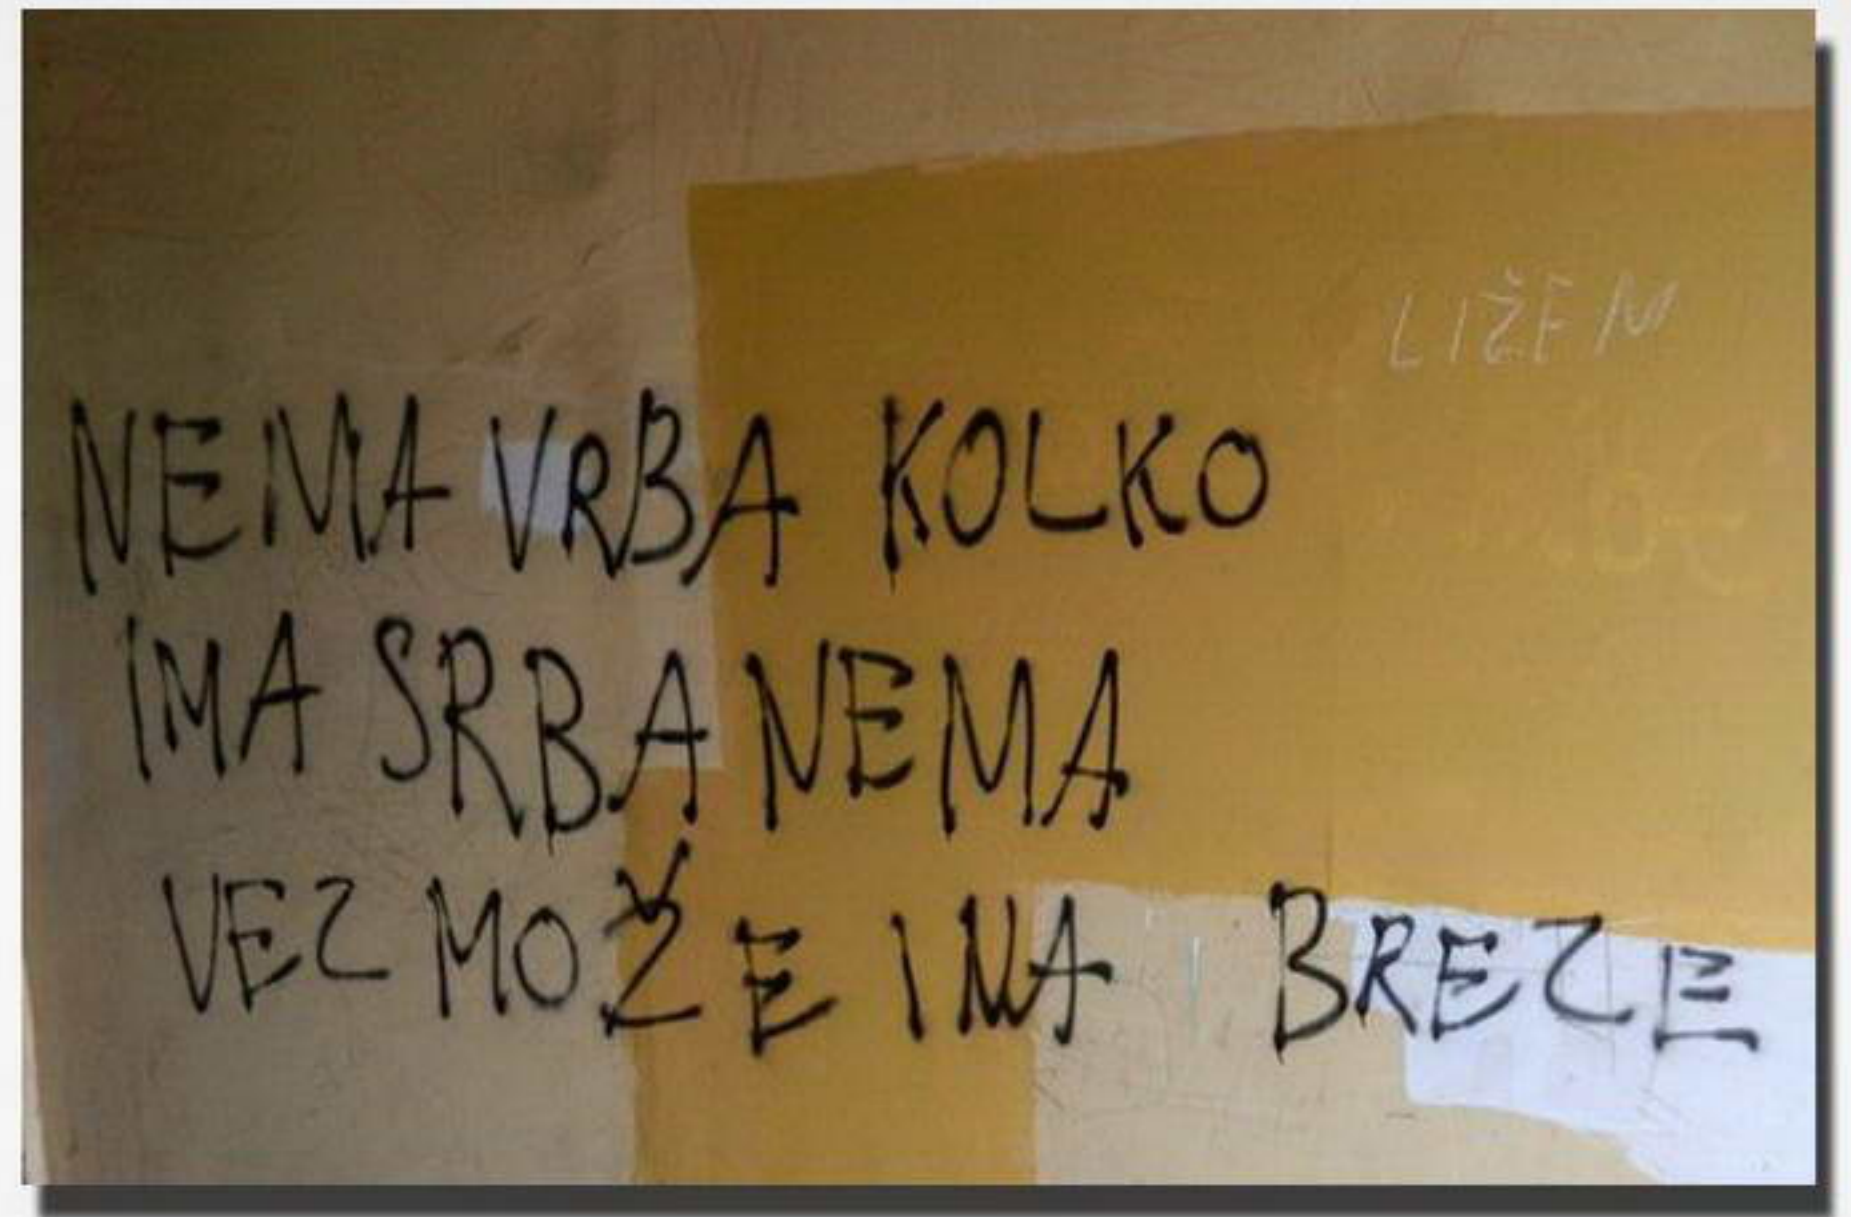 LIŽEM
NEMA VRBA KOLKO
IMA SRBA NEMA
VEZ MOŽE I NA BREZE